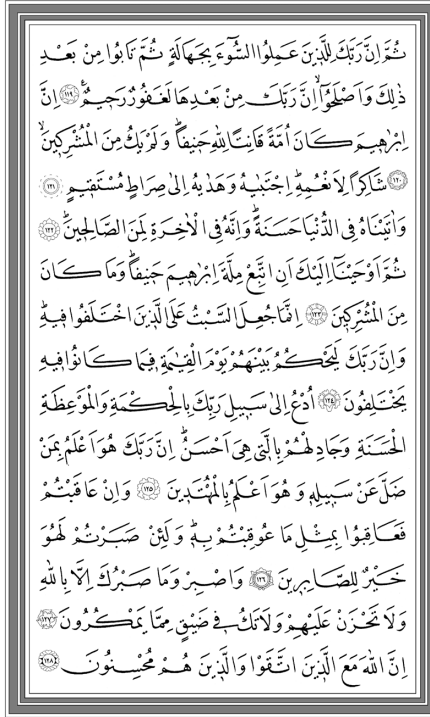 ثُمَّ اِنَّ رَبَّكَ لِلَّذ۪ينَ عَمِلُوا السُّٓوءَ بِجَهَالَةٍ ثُمَّ تَابُوا مِنْ بَعْدِ
ذٰلِكَ وَاَصْلَحُٓوا اِنَّ رَبَّكَ مِنْ بَعْدِهَا لَغَفُورٌ رَح۪يمٌ ﴿١١٩﴾ اِنَّ
اِبْرٰه۪يمَ كَانَ اُمَّةً قَانِتًا لِلّٰهِ حَن۪يفًا وَلَمْ يَكُ مِنَ الْمُشْرِك۪ينَ
﴿١٢٠﴾ شَاكِرًا لِاَنْعُمِهِ اِجْتَبٰيهُ وَهَدٰيهُ اِلٰى صِرَاطٍ مُسْتَق۪يمٍ ﴿١٢١﴾
وَاٰتَيْنَاهُ فِي الدُّنْيَا حَسَنَةً وَاِنَّهُ فِي الْاٰخِرَةِ لَمِنَ الصَّالِح۪ينَ ﴿١٢٢﴾
ثُمَّ اَوْحَيْنَٓا اِلَيْكَ اَنِ اتَّبِعْ مِلَّةَ اِبْرٰه۪يمَ حَن۪يفًا وَمَا كَانَ
مِنَ الْمُشْرِك۪ينَ ﴿١٢٣﴾ اِنَّمَا جُعِلَ السَّبْتُ عَلَى الَّذ۪ينَ اخْتَلَفُوا ف۪يهِ
وَاِنَّ رَبَّكَ لَيَحْكُمُ بَيْنَهُمْ يَوْمَ الْقِيٰمَةِ ف۪يمَا كَانُوا ف۪يهِ
يَخْتَلِفُونَ ﴿١٢٤﴾ اُدْعُ اِلٰى سَب۪يلِ رَبِّكَ بِالْحِكْمَةِ وَالْمَوْعِظَةِ
الْحَسَنَةِ وَجَادِلْهُمْ بِالَّت۪ي هِيَ اَحْسَنُ اِنَّ رَبَّكَ هُوَ اَعْلَمُ بِمَنْ
ضَلَّ عَنْ سَب۪يلِه۪ وَهُوَ اَعْلَمُ بِالْمُهْتَد۪ينَ ﴿١٢٥﴾ وَاِنْ عَاقَبْتُمْ
فَعَاقِبُوا بِمِثْلِ مَا عُوقِبْتُمْ بِه۪ وَلَئِنْ صَبَرْتُمْ لَهُوَ
خَيْرٌ لِلصَّابِر۪ينَ ﴿١٢٦﴾ وَاصْبِرْ وَمَا صَبْرُكَ اِلَّا بِاللّٰهِ
وَلَا تَحْزَنْ عَلَيْهِمْ وَلَا تَكُ ف۪ي ضَيْقٍ مِمَّا يَمْكُرُونَ ﴿١٢٧﴾
اِنَّ اللّٰهَ مَعَ الَّذ۪ينَ اتَّقَوْا وَالَّذ۪ينَ هُمْ مُحْسِنُونَ ﴿١٢٨﴾